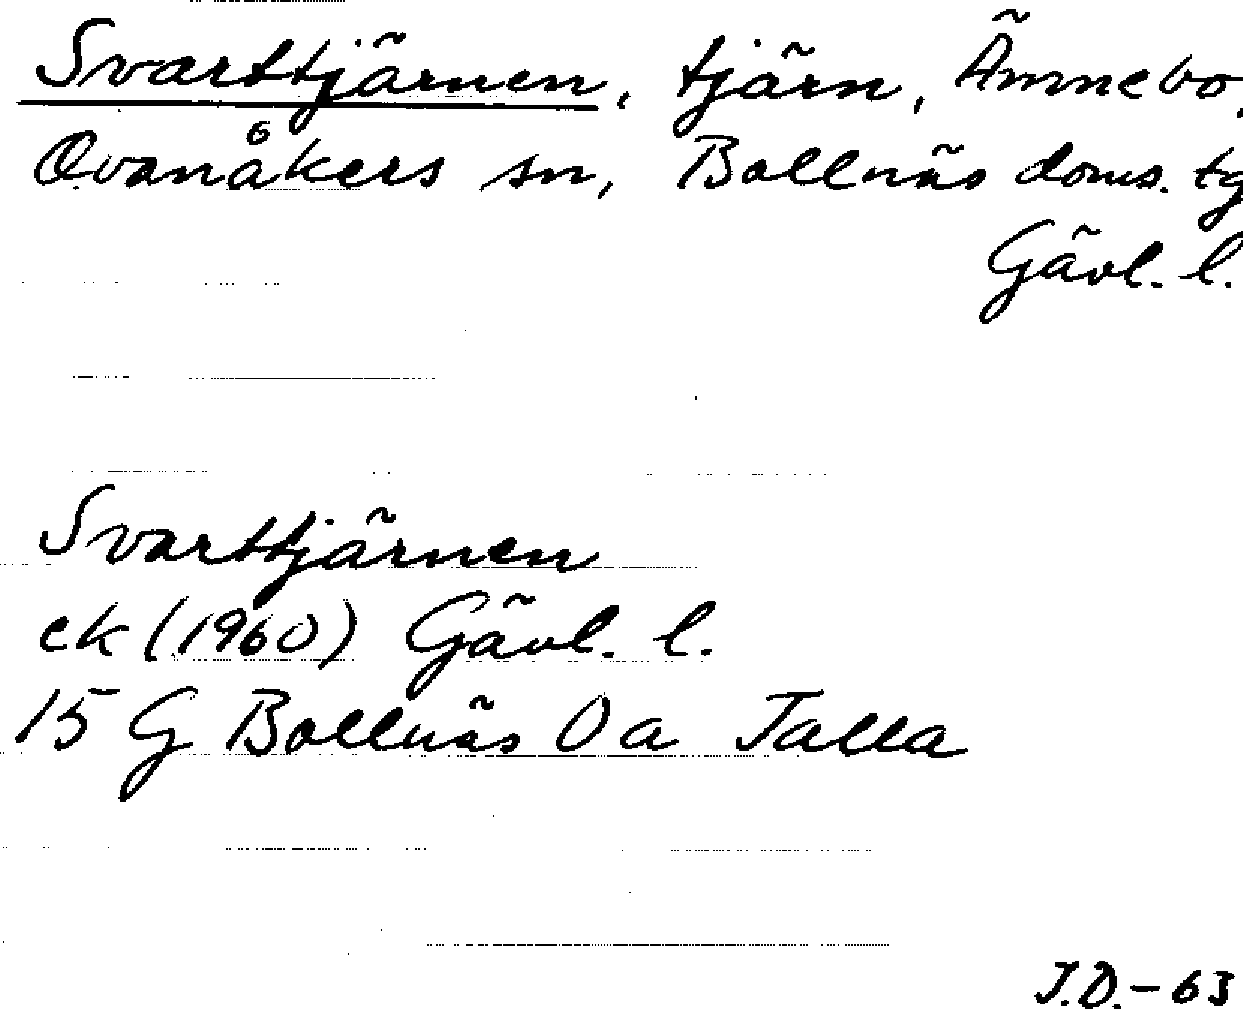 Svarttjärnen, tjärn, Ämnebo,
Ovanåkers sn, Bollnäs doms. tg
Gävl. l.
Svarttjärnen
ek (1960) Gävl. l.
15 G Bollnäs 0 a Talla
J.D.-63